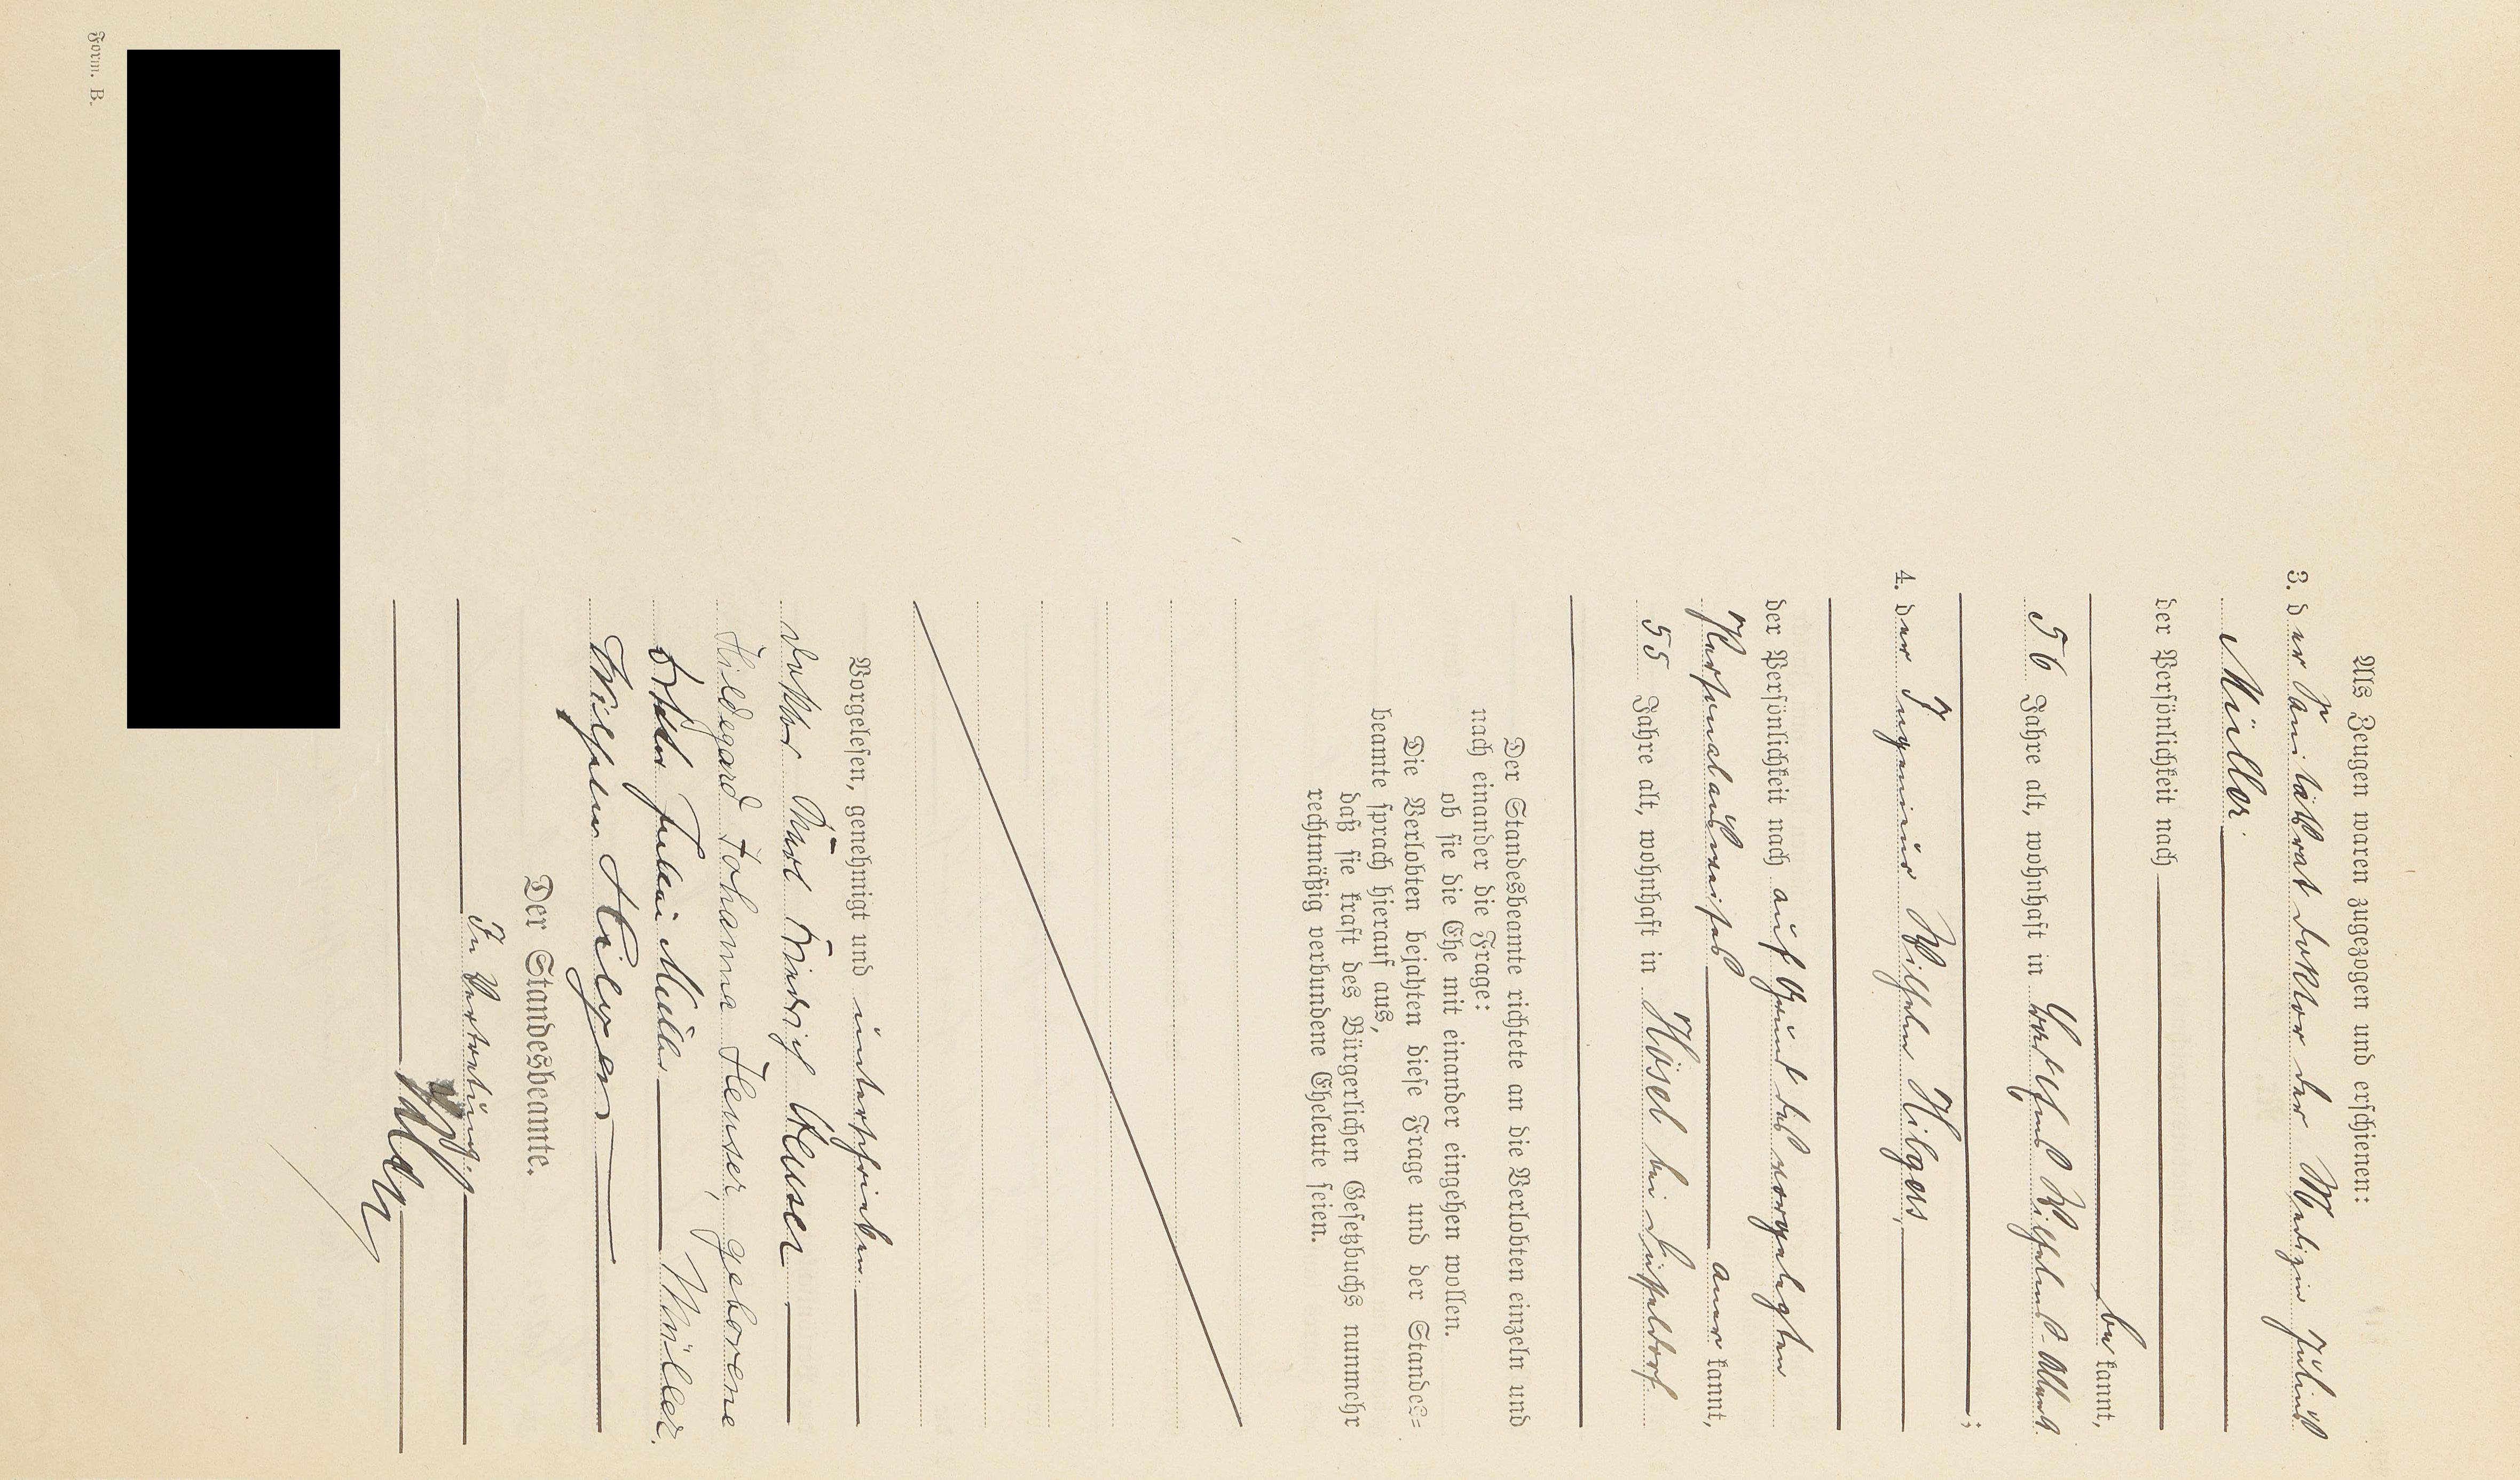 Als Zeugen waren zugezogen und erschienen:
3. der Sanitätsrat Doktor der Medizin Julius
Müller
der Persönlichkeit nach
bekannt,
56 Jahre alt, wohnhaft in Wilhelms-Allee
;
4. der Ingenieur Wilhelm Hilgers
der Persönlichkeit nach auf Grund des vorgelegten
Personalausweises anerkannt,
55 Jahre alt, wohnhaft in Hösel bei Düsseldorf.
Der Standesbeamte richtete an die Verlobten einzeln und
nach einander die Frage:
ob sie die Ehe mit einander eingehen wollen.
Die Verlobten bejahten diese Frage und der Standes=
beamte sprach hierauf aus,
daß sie kraft des Bürgerlichen Gesetzbuchs nunmehr
rechtmäßig verbundene Eheleute seien.
Vorgelesen, genehmigt und unterschrieben
Doktor Karl Heuser
Hildegard Johanna Heuser, geborene
Müller.
Wilhelm Hilgers
Der Standesbeamte.
In Vertretung.
Form. B.